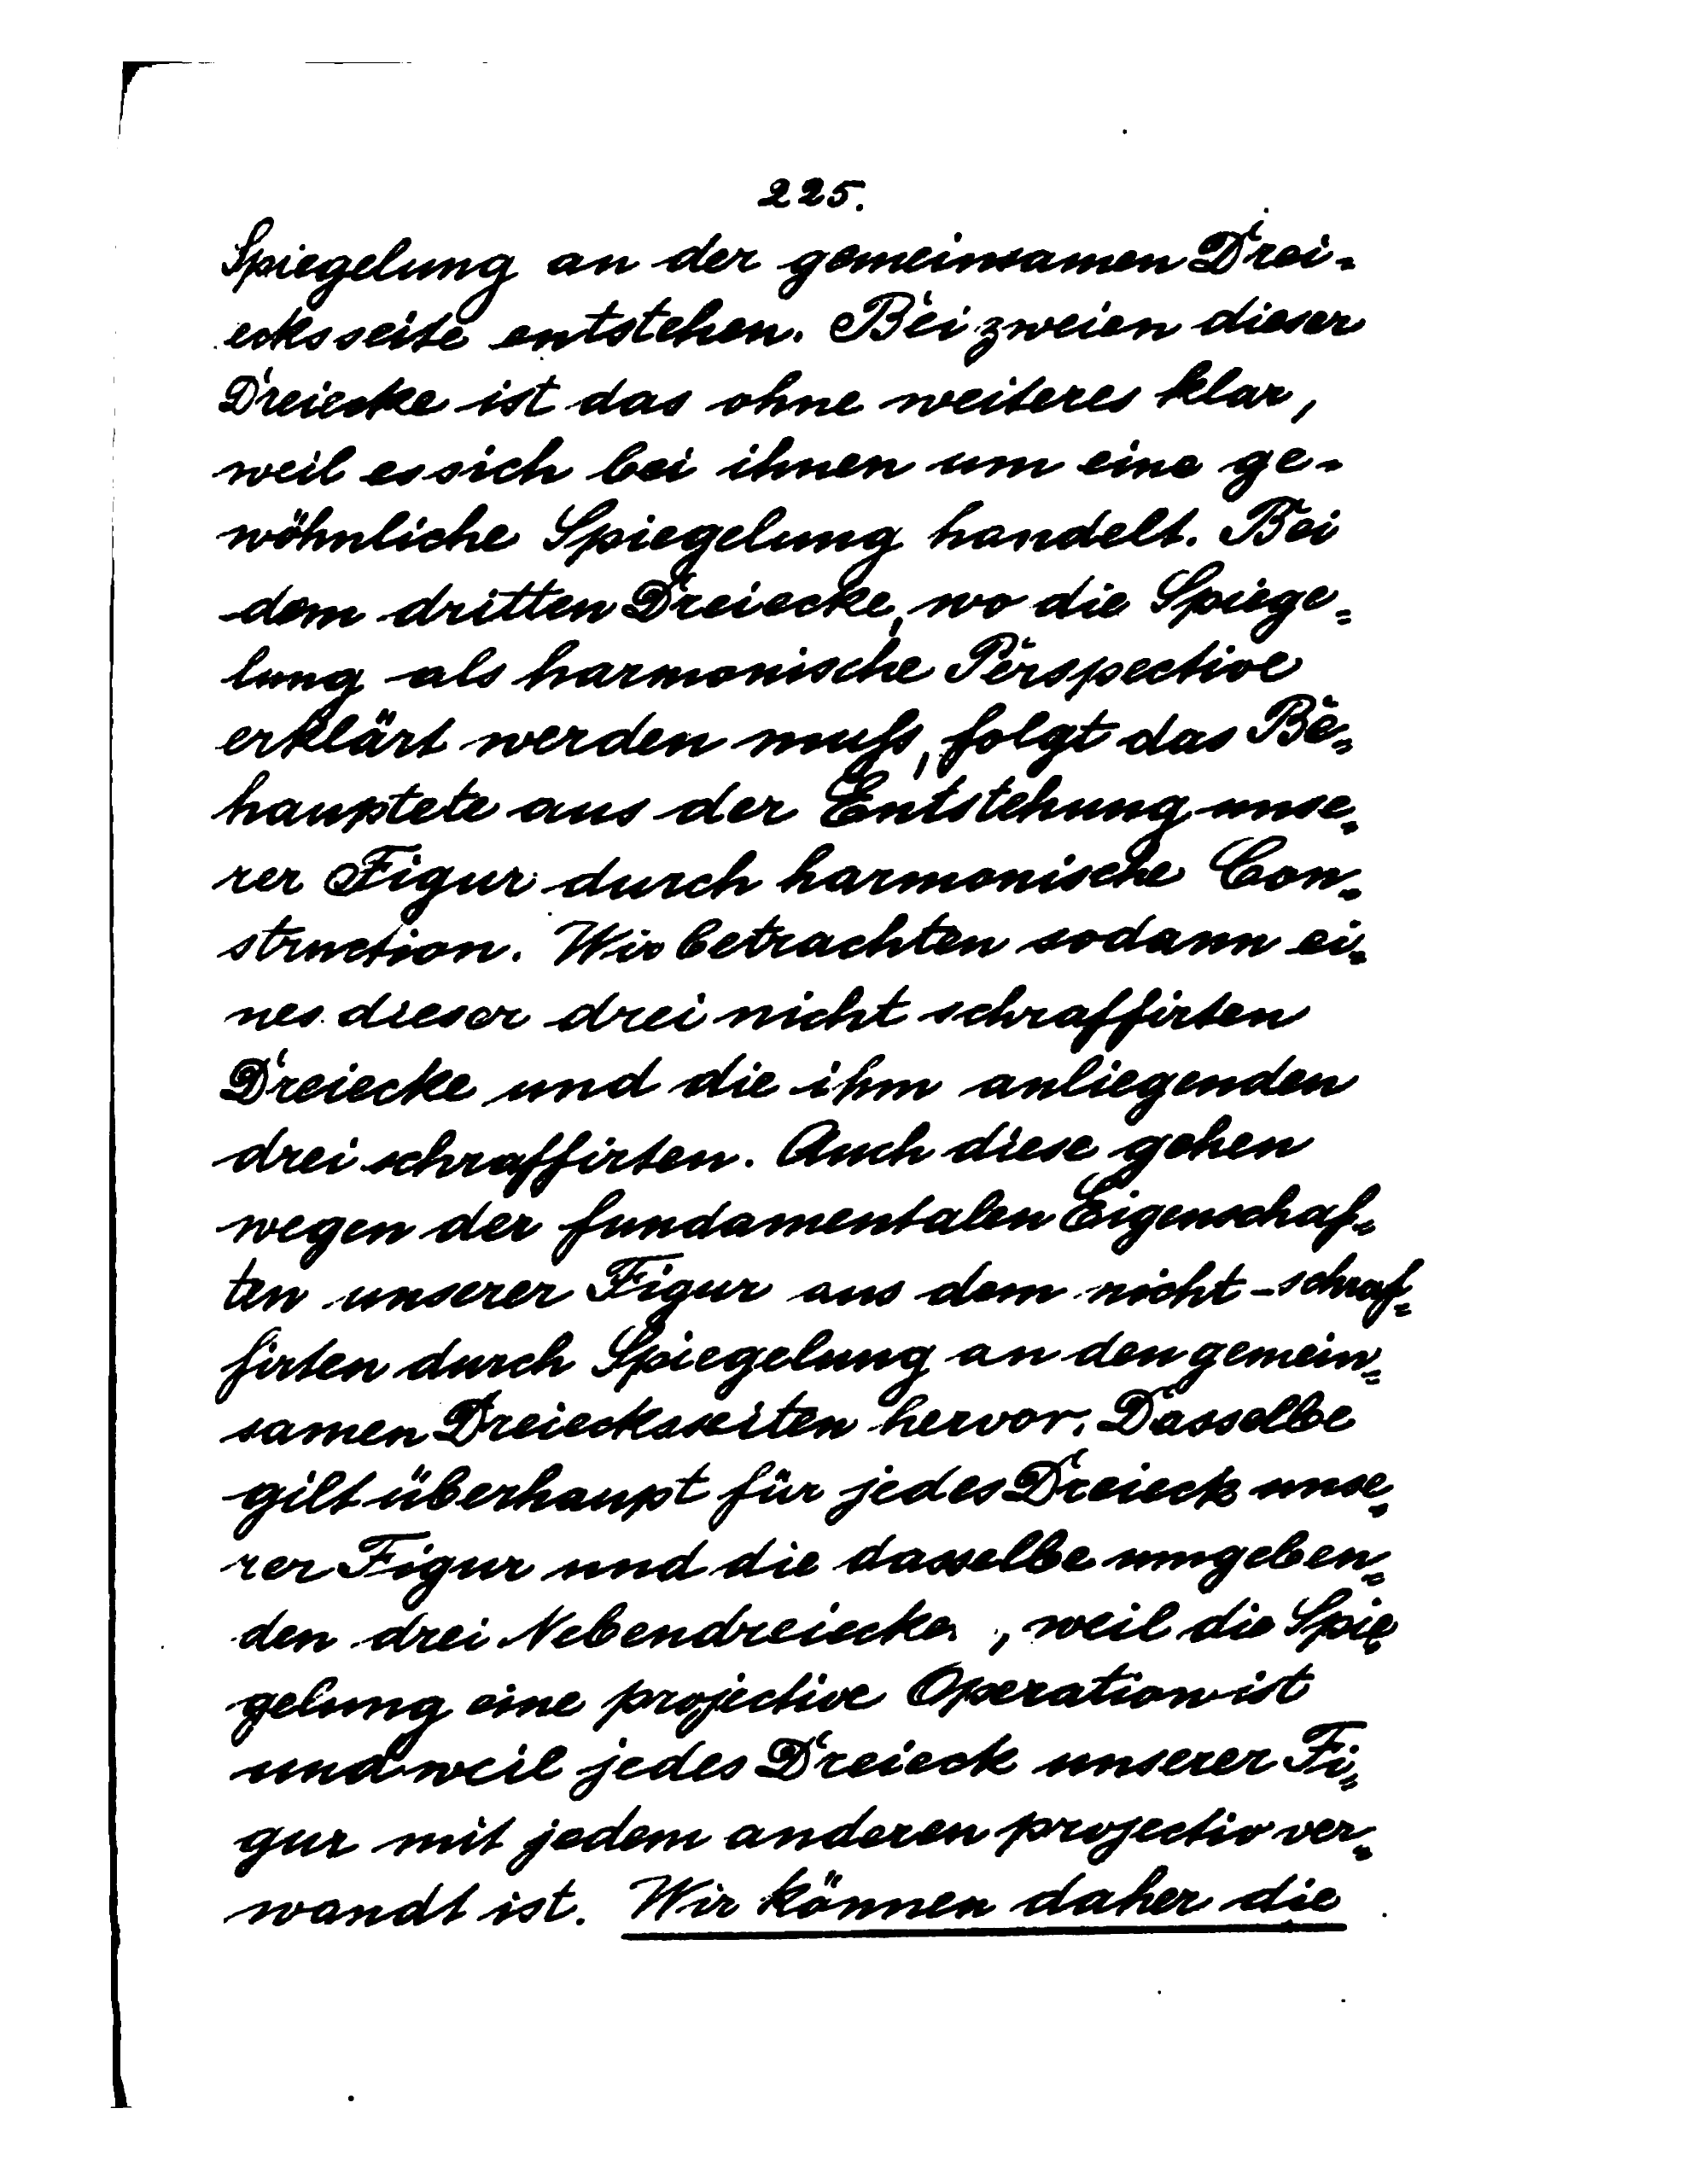 225.
Spiegelung an der gemeinsamen Drei-
ecksseite entstehen. Bei zweien dieser
Dreiecke ist das ohne weiteres klar,
weil es sich bei ihnen um eine ge-
wöhnliche Spiegelung handelt. Bei
dem dritten Dreiecke, wo die Spiege-
lung als harmonische Perspective
erklärt werden muß, folgt das Be-
hauptete aus der Entstehung unse-
rer Figur durch harmonische Con-
struction. Wir betrachten sodann ei-
nes dieser drei nicht schraffirten
Dreiecke und die ihm anliegenden
drei schraffirten. Auch diese gehen
wegen der fundamentalen Eigenschaf-
ten unserer Figur aus dem nicht-schraf-
firten durch Spiegelung an den gemein-
samen Dreiecksseiten hervor. Dasselbe
gilt überhaupt für jedes Dreieck unse-
rer Figur und die dasselbe umgeben-
den drei Nebendreiecke, weil die Spie-
gelung eine projective Operation ist
und weil jedes Dreieck unserer Fi-
gur mit jedem anderen projectiv ver-
wandt ist. Wir können daher die